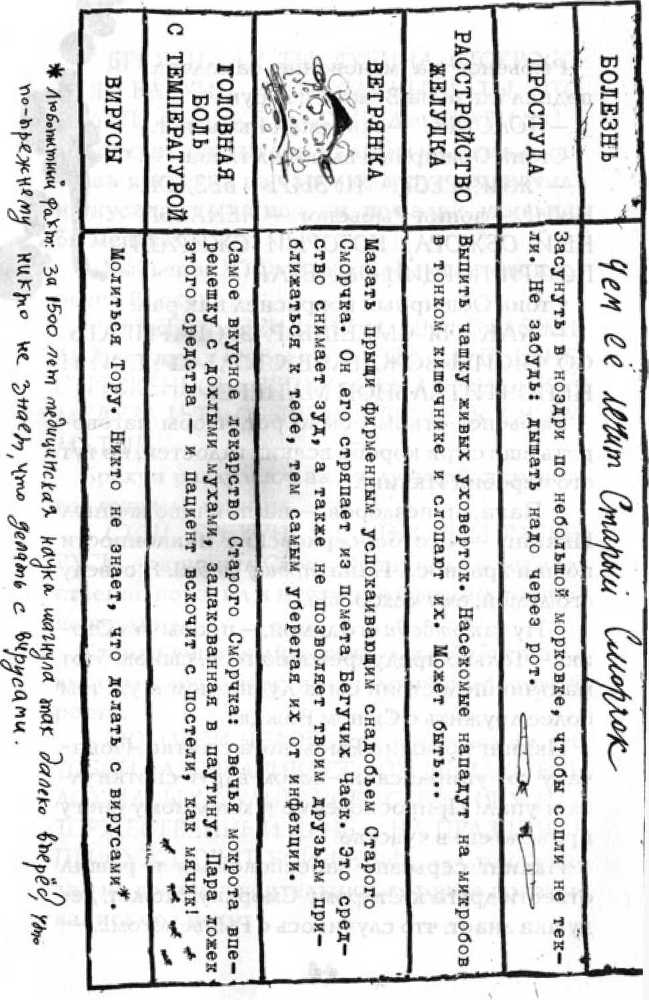 БОЛЕЗНЬ
Чем её лечит Старый Сморчок
ПРОСТУДА
Засунуть в ноздри по небольшой морковке, чтобы сопли не тек-
ли. Не забудь: дышать надо через рот.
РАССТРОЙСТВО
ЖЕЛУДКА
Выпить чашку живых уховерток. Насекомые нападут на микробов
в тонком кишечнике и слопают их. Может быть...
ВЕТРЯНКА
Мазать прыщи фирменным успокаивающим снадобьем Старого
Сморчка. Он его стряпает из помета Бегучих чаек. Это сред-
ство снимае зуд, а также не позволяет твоим друзьям при-
ближаться к тебе, тем самым уберегая их от инфекции.
ГОЛОВНАЯ
БОЛЬ
С ТЕМПЕРАТУРОЙ
Самое вкусное лекарство Старого Сморчка: овечья мокрота впе-
ремешку с дохлыми мухами, запакованная в паутину. Пара ложек
этого средства — и пациент вскочит с постели, как мячик!
ВИРУСЫ
Молиться Тору. Никто не знает, что делать с вирусами*
* Любопытный факт: за 1500 лет медицинская наука шагнула так далеко вперёд, что
по-прежнему никто не знает, что делать с вирусами.